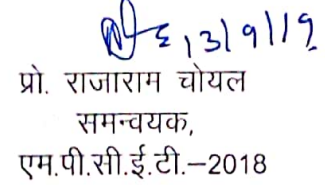 13/9/19
प्रो. राजाराम चोयल
समन्वयक,
एम.पी.सी.ई.टी.–2018